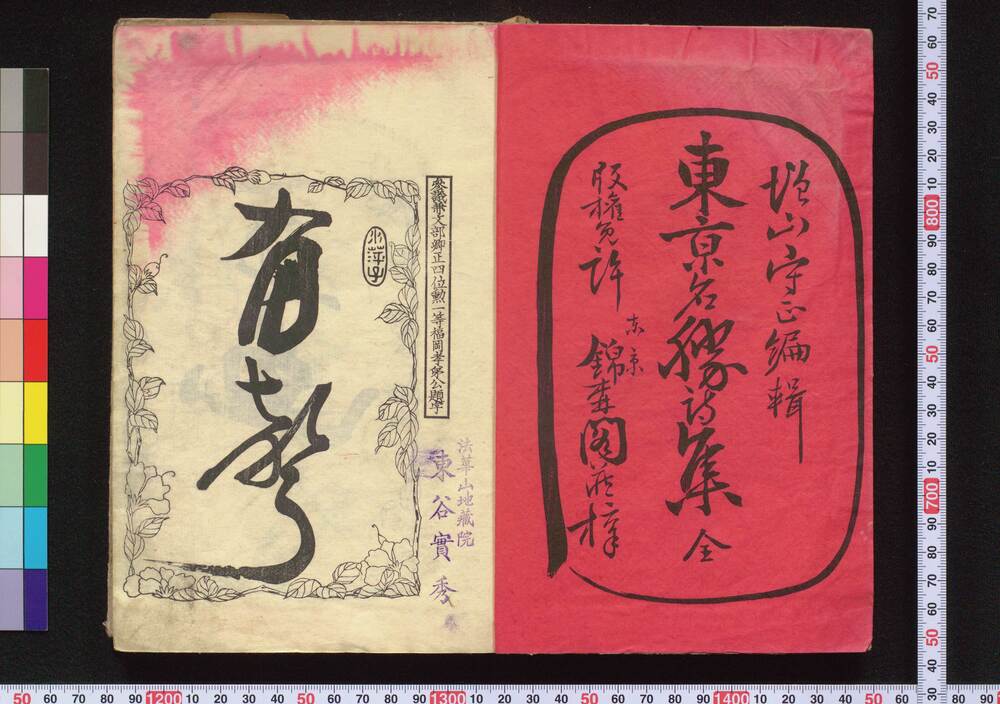 増山守正編輯
東京名勝詩集 全
版權免許
東京 錦森閣藏梓
參議兼文部卿正四位勲一等福岡孝弟公題字
有声
法華山地藏院
東谷實秀